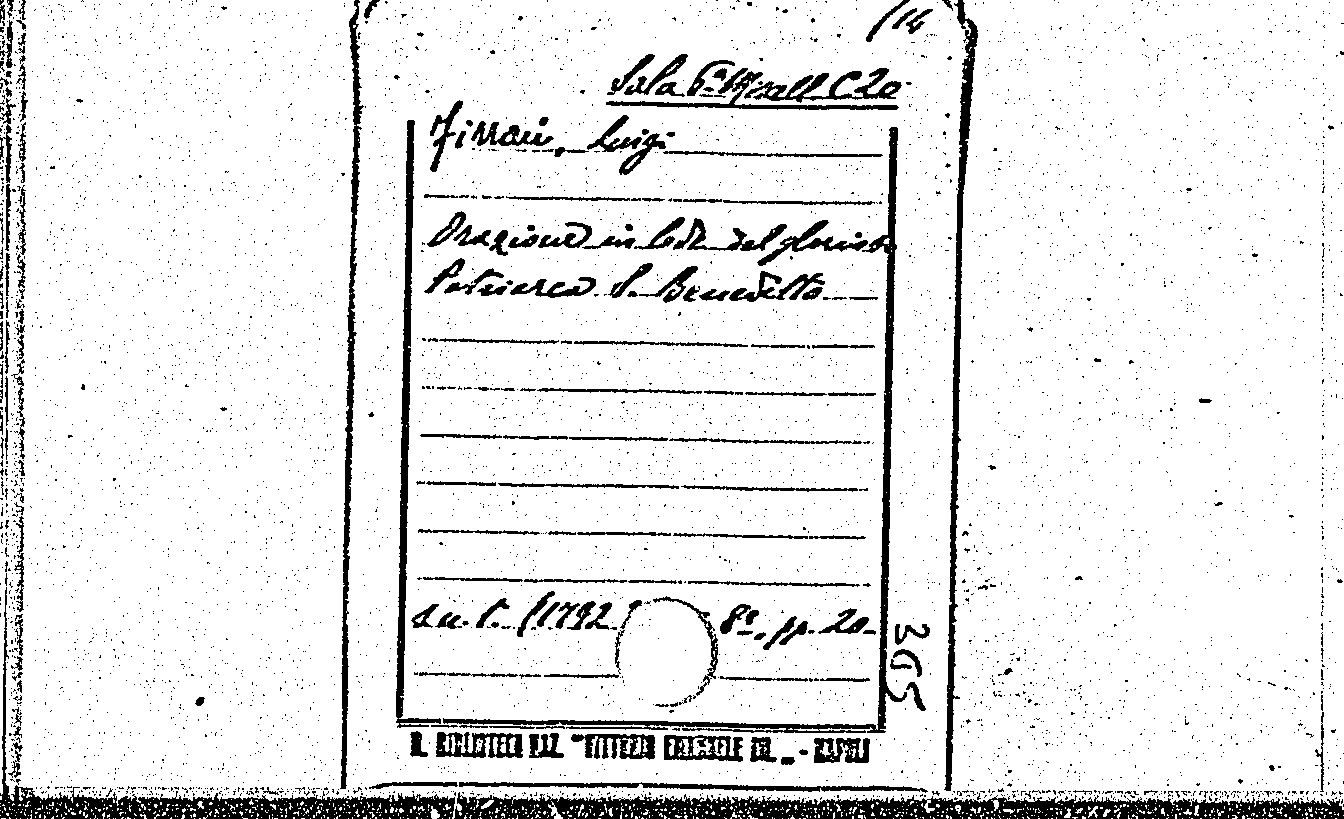 /14
Sala 6ª Miscell C20
Luigi
Orazione in lode del glorioso
Patriarca S. Benedetto
s.n.t. (1792 8º, pp. 20-
365
R. BIBLIOTECA NAZ. "VITTORIO EMANUELE III„ - NAPOLI